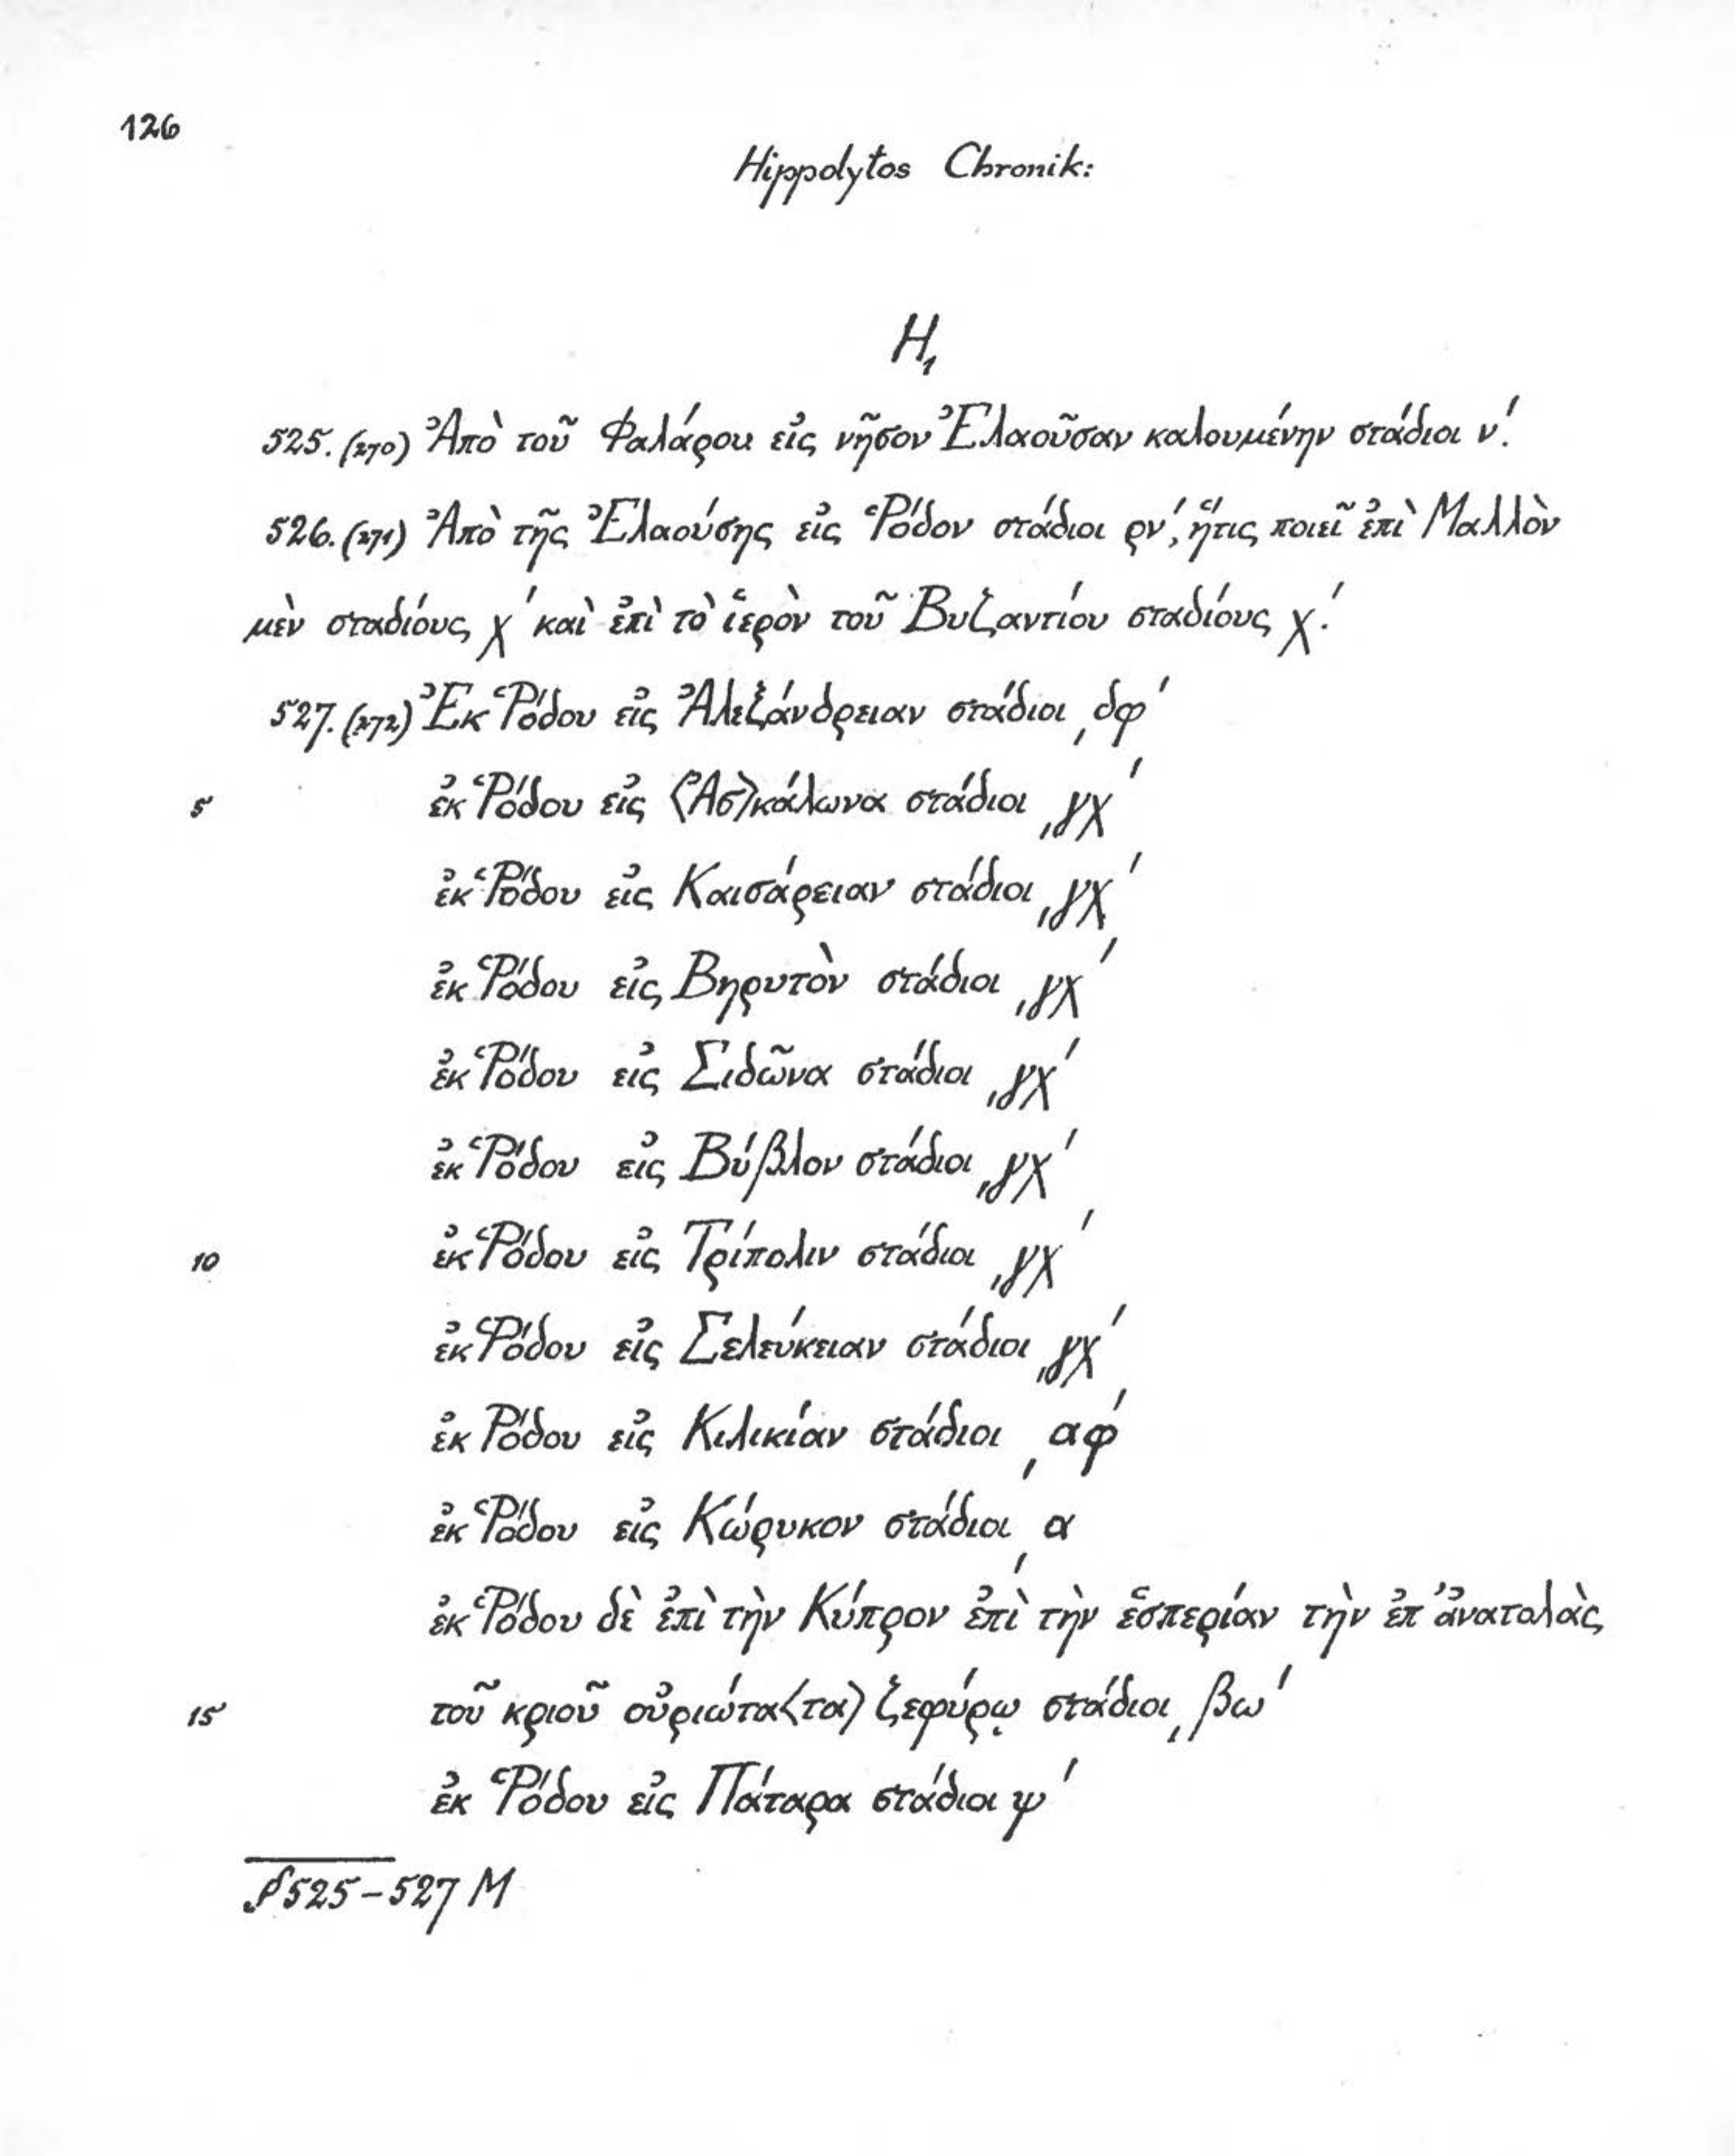 126
Hippolytos Chronik:
H₁
525. (270) Ἀπὸ τοῦ Φαλάρου εἰς νῆσον Ἐλαοῦσαν καλουμένην στάδιοι ν´.
526. (271) Ἀπὸ τῆς Ἐλαούσης εἰς Ῥόδον στάδιοι ρν´, ἥτις ποιεῖ ἐπὶ Μαλλὸν
μὲν σταδίους χ´ καὶ ἐπὶ τὸ ἱερὸν τοῦ Βυζαντίου σταδίους χ´.
527. (272) Ἐκ Ῥόδου εἰς Ἀλεξάνδρειαν στάδιοι ͵δφ´
5 ἐκ Ῥόδου εἰς ⟨Ἀσ⟩κάλωνα στάδιοι ͵γχ´
ἐκ Ῥόδου εἰς Καισάρειαν στάδιοι ͵γχ´
ἐκ Ῥόδου εἰς Βηρυτὸν στάδιοι ͵γχ´
ἐκ Ῥόδου εἰς Σιδῶνα στάδιοι ͵γχ´
ἐκ Ῥόδου εἰς Βύβλον στάδιοι ͵γχ´
10 ἐκ Ῥόδου εἰς Τρίπολιν στάδιοι ͵γχ´
ἐκ Ῥόδου εἰς Σελεύκειαν στάδιοι ͵γχ´
ἐκ Ῥόδου εἰς Κιλικίαν στάδιοι ͵αφ´
ἐκ Ῥόδου εἰς Κώρυκον στάδιοι ͵α
ἐκ Ῥόδου δὲ ἐπὶ τὴν Κύπρον ἐπὶ τὴν ἑσπερίαν τὴν ἐπ᾽ ἀνατολὰς
15 τοῦ κριοῦ οὐριώτα⟨τα⟩ ζεφύρῳ στάδιοι ͵βω´
ἐκ Ῥόδου εἰς Πάταρα στάδιοι ψ´
§ 525–527 M